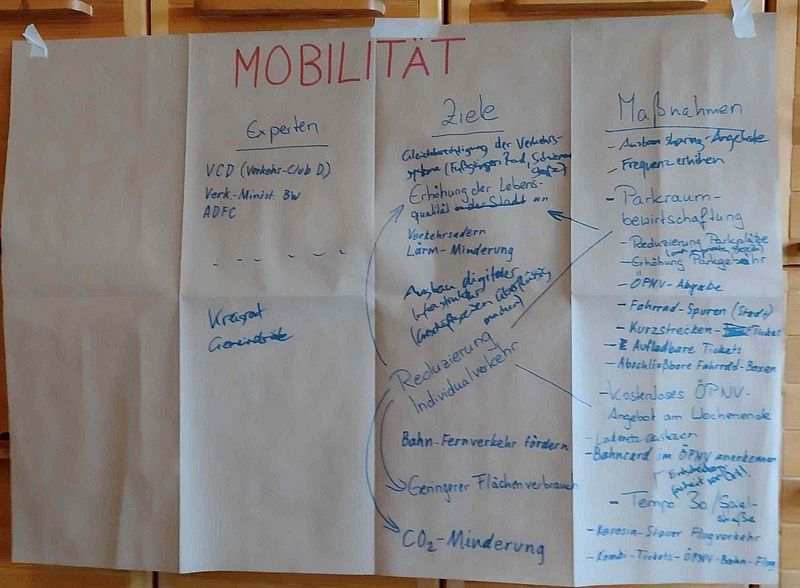 MOBILITÄT
Experten
VCD (Verkehrs-Club D)
Verk.-Minist. BW
ADFC
Kreisrat
Gemeinderäte
Ziele
Gleichberechtigung der Verkehrs-
systeme (Fußgänger, Rad, Schiene
Straße)
Erhöhung der Lebens-
qualität in der Stadt an
Verkehrsadern
Lärm-Minderung
Ausbau digitaler
Infrastruktur
(Geschäftsreisen überflüssig
machen)
Reduzierung
Individualverkehr
Bahn-Fernverkehr fördern
Geringerer Flächenverbrauch
CO₂-Minderung
Maßnahmen
- Ausbau sharing-Angebote
- Frequenz erhöhen
- Parkraum-
bewirtschaftung
- Reduzierung Parkplätze
- Erhöhung Parkgebühr
- ÖPNV-Abgabe
- Fahrrad-Spuren (Stadt)
- Kurzstrecken-Ticket
- Aufladbare Tickets
- Abschließbare Fahrrad-Boxen
- Kostenloses ÖPNV-
Angebot am Wochenende
- Ladenetz ausbauen
- Bahncard im ÖPNV anerkennen
Entscheidungs-
freiheit vor Ort!
- Tempo 30/Spiel-
straße
- Kerosin-Steuer Flugverkehr
- Kombi-Tickets-ÖPNV-Bahn-Flug